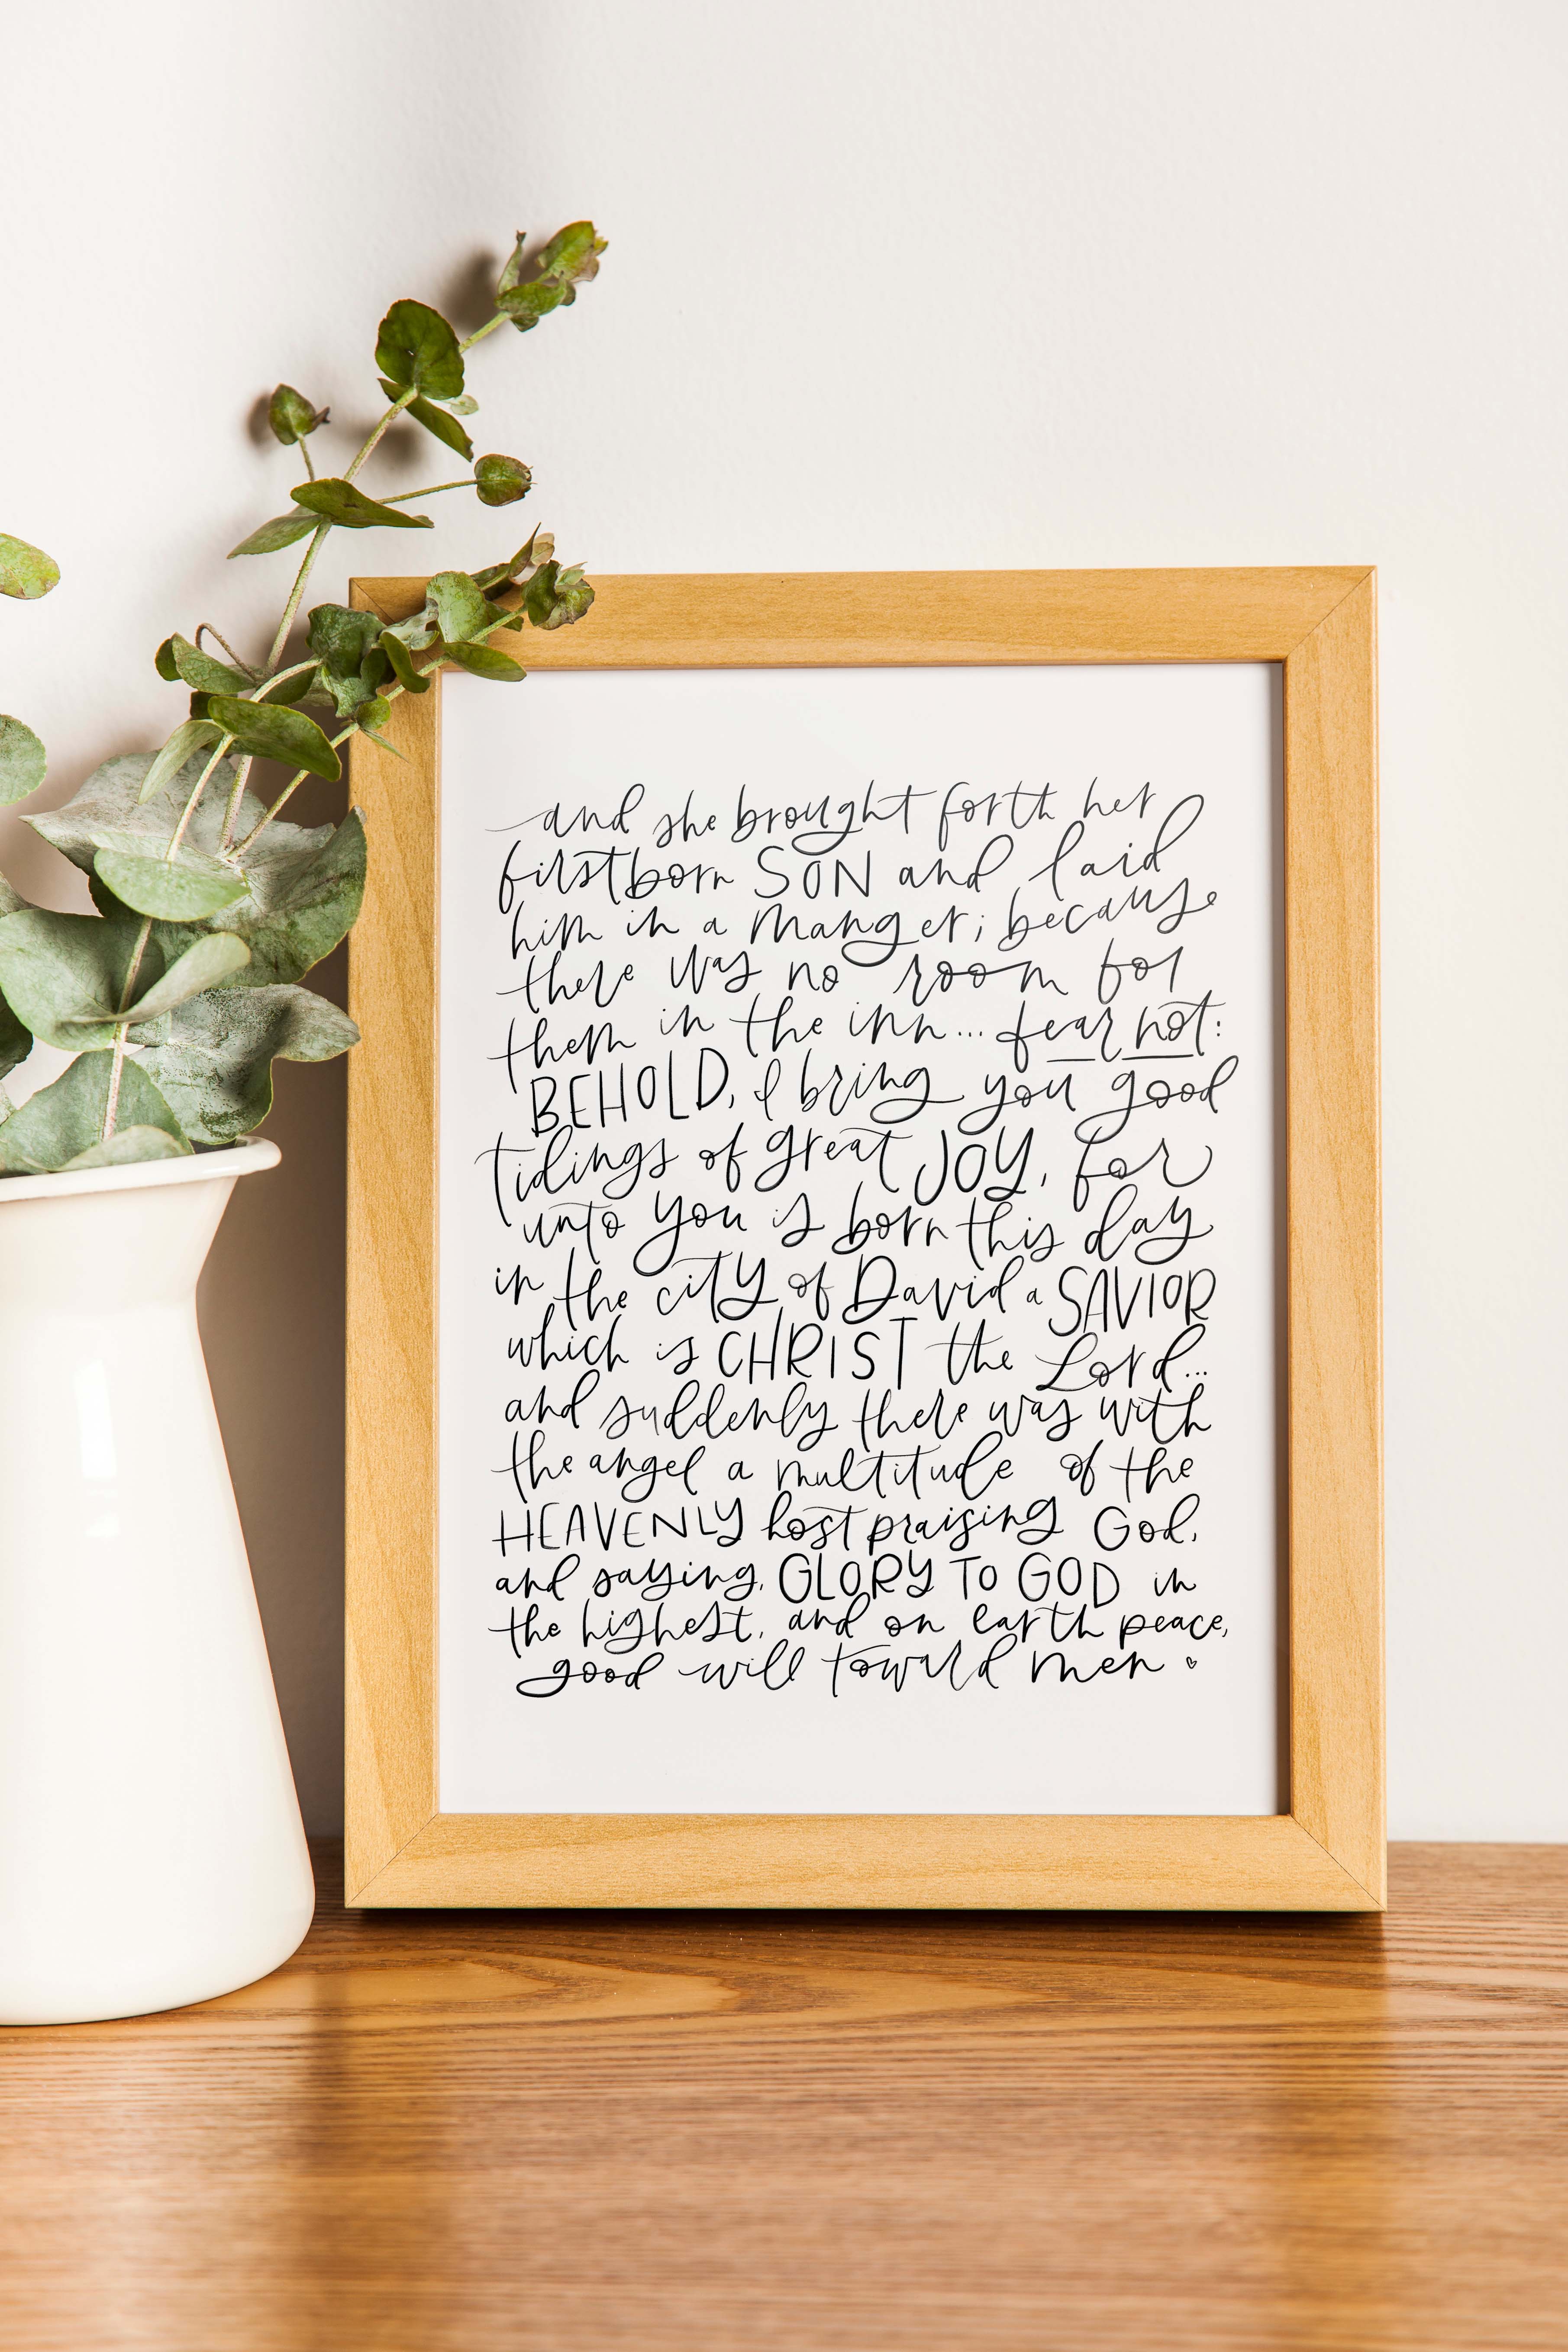 and she brought forth her
firstborn SON and laid
him in a manger; because
there was no room for
them in the inn... fear not:
BEHOLD, I bring you good
tidings of great JOY, for
unto you is born this day
in the city of David a SAVIOR
which is CHRIST the Lord...
and suddenly there was with
the angel a multitude of the
HEAVENLY host praising God,
and saying, GLORY TO GOD in
the highest, and on earth peace,
good will toward men